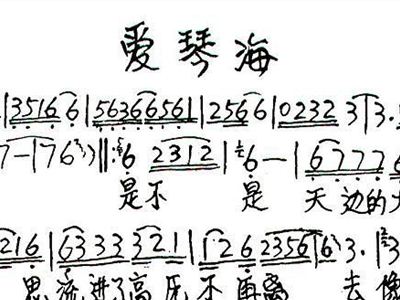 爱琴海
|3516 6|56366561|2566|0232 3|3.
7-|76)||:6 2312|6-|6777 6
是不 是 天边的
216|6333 321|126 2356|6 3.|3
思 进了高 不再离 去像